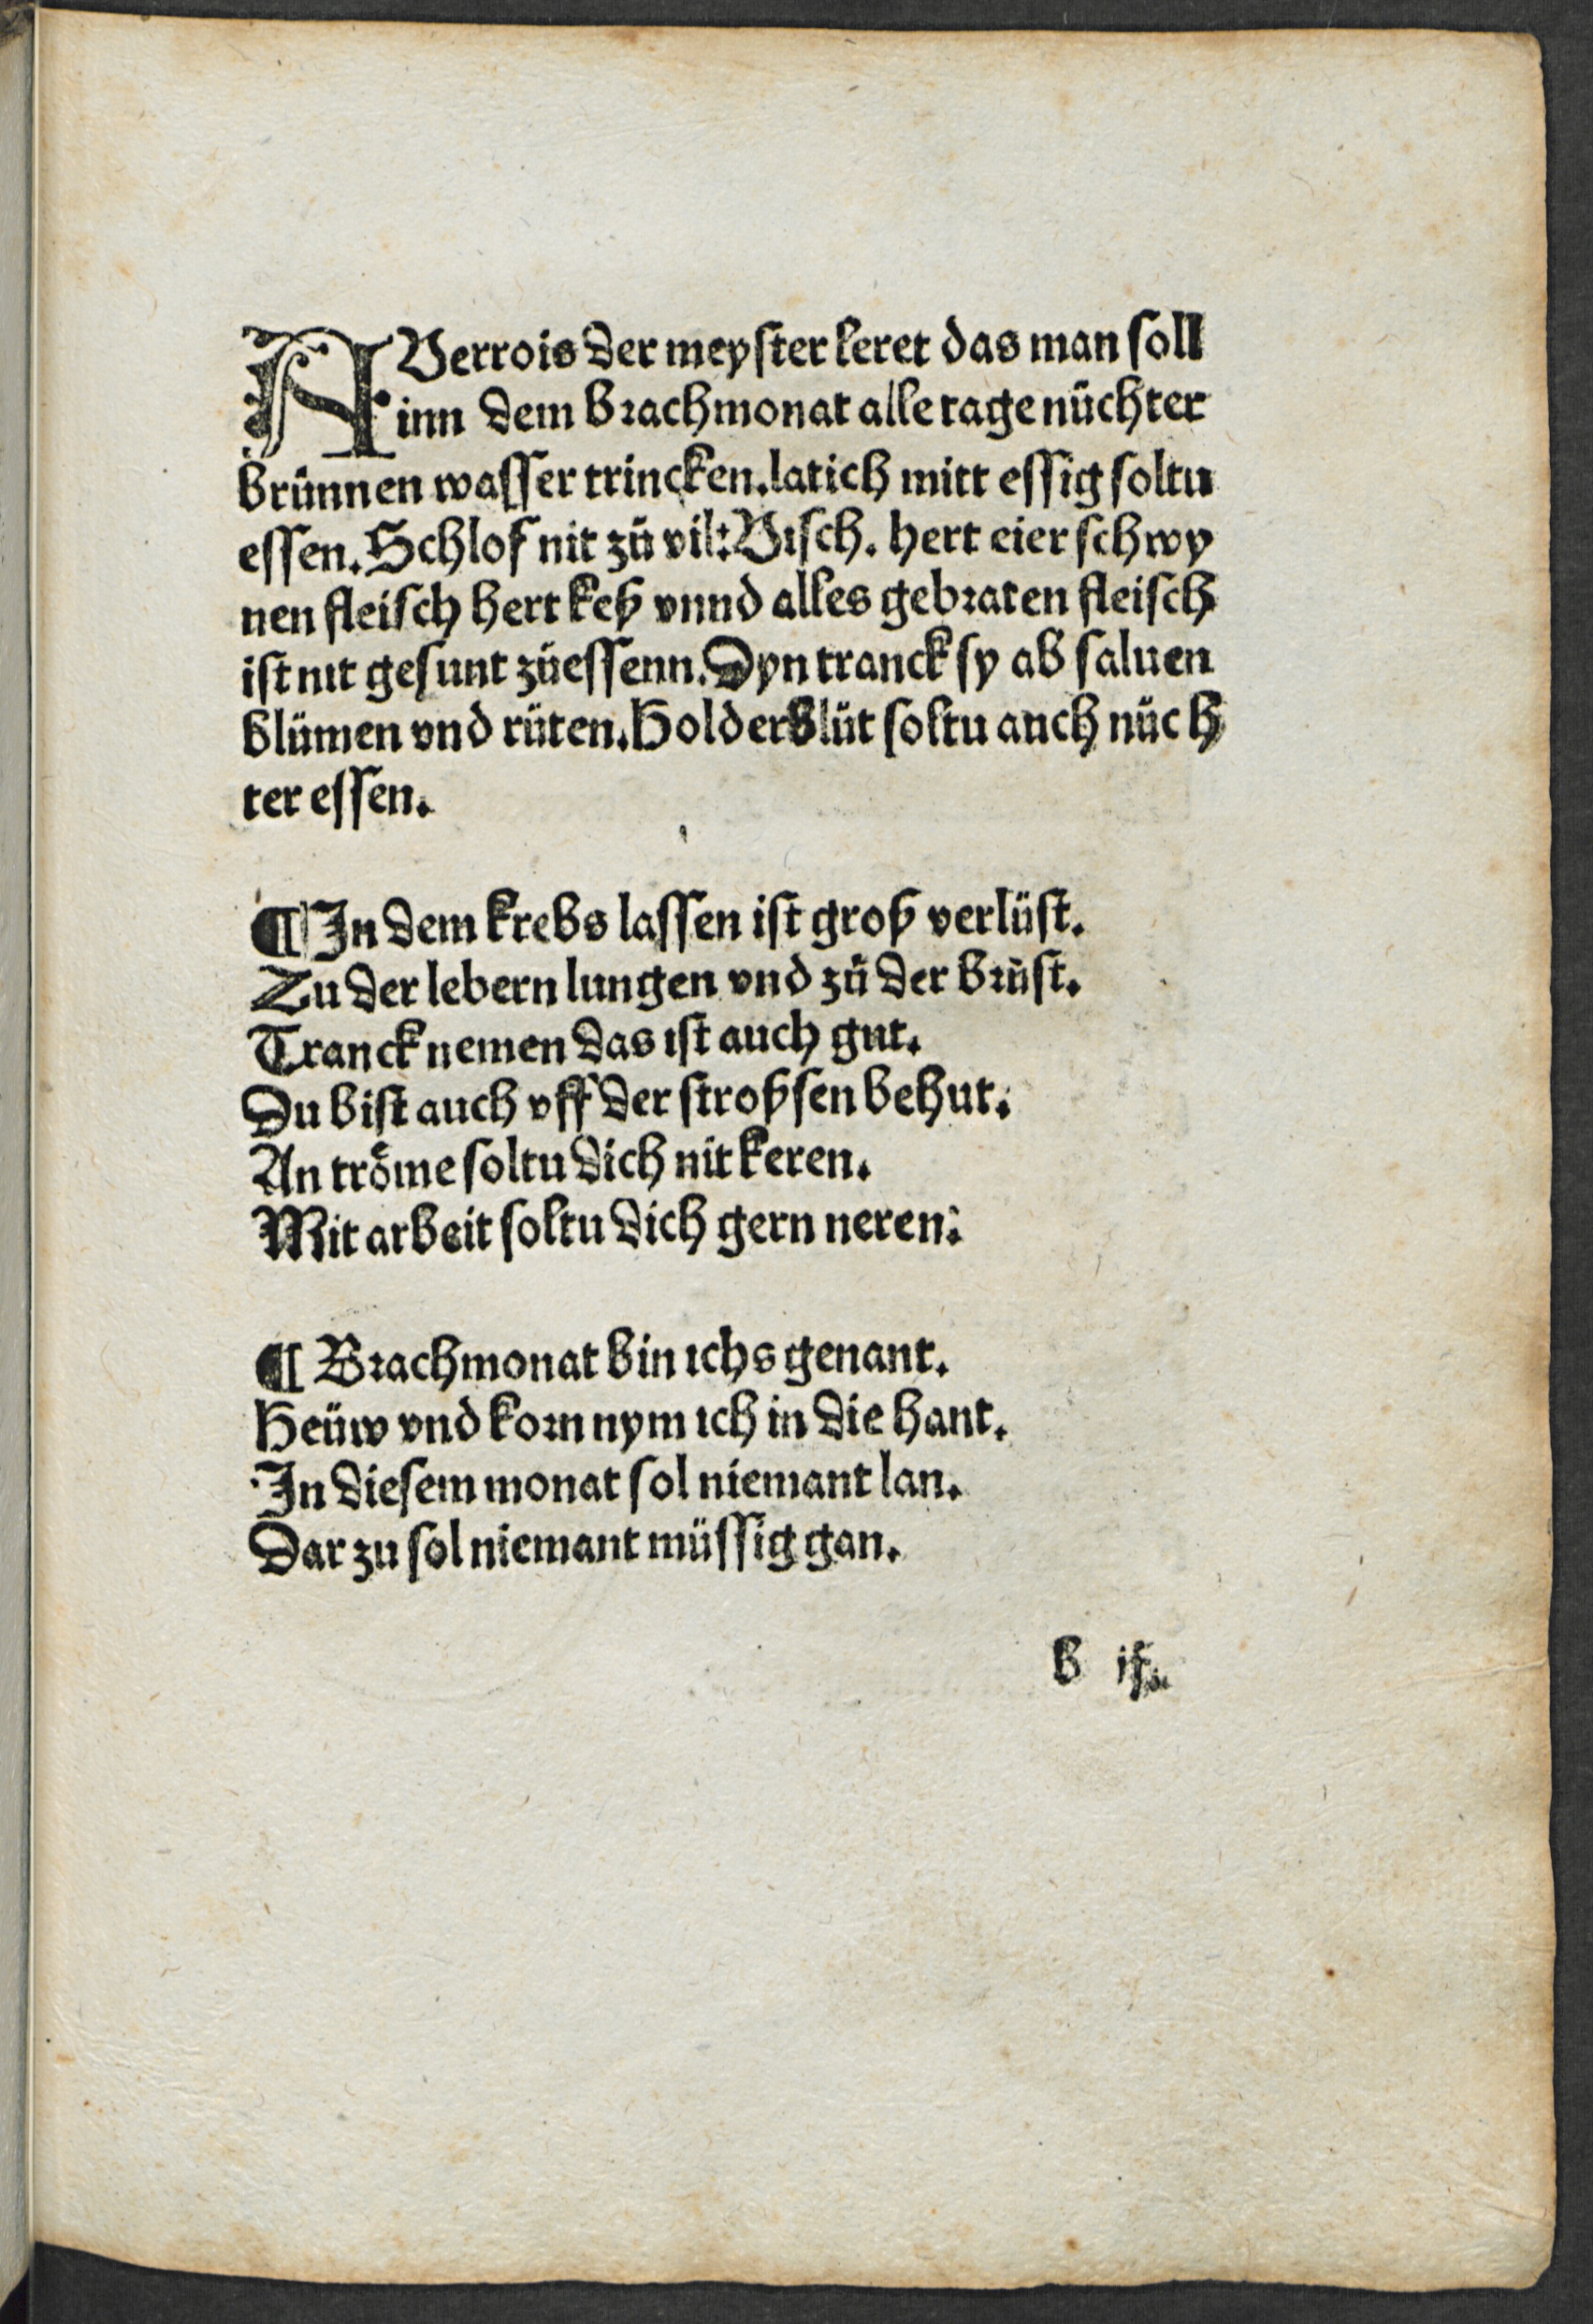 AVerrois der meyster leret das man soll
inn dem brachmonat alle tage nüchter
brünnen wasser trincken. latich mitt essig soltu
essen. Schlof nit zů vil: Visch. hert eier schwy
nen fleisch hert keß vnnd alles gebraten fleisch
ist nit gesunt zůessenn. Dyn tranck sy ab saluen
blůmen vnd rüten. Holderblüt soltu auch nüch
ter essen.
¶ In dem krebs lassen ist groß verlüst.
Zu der lebern lungen vnd zů der brůst.
Tranck nemen das ist auch gut.
Du bist auch vff der stroßsen behut.
An tröme soltu dich nit keren.
Mit arbeit soltu dich gern neren:
¶ Brachmonat bin ichs genant.
Heüw vnd korn nym ich in die hant.
In diesem monat sol niemant lan.
Dar zu sol niemant müssig gan.
b ij.